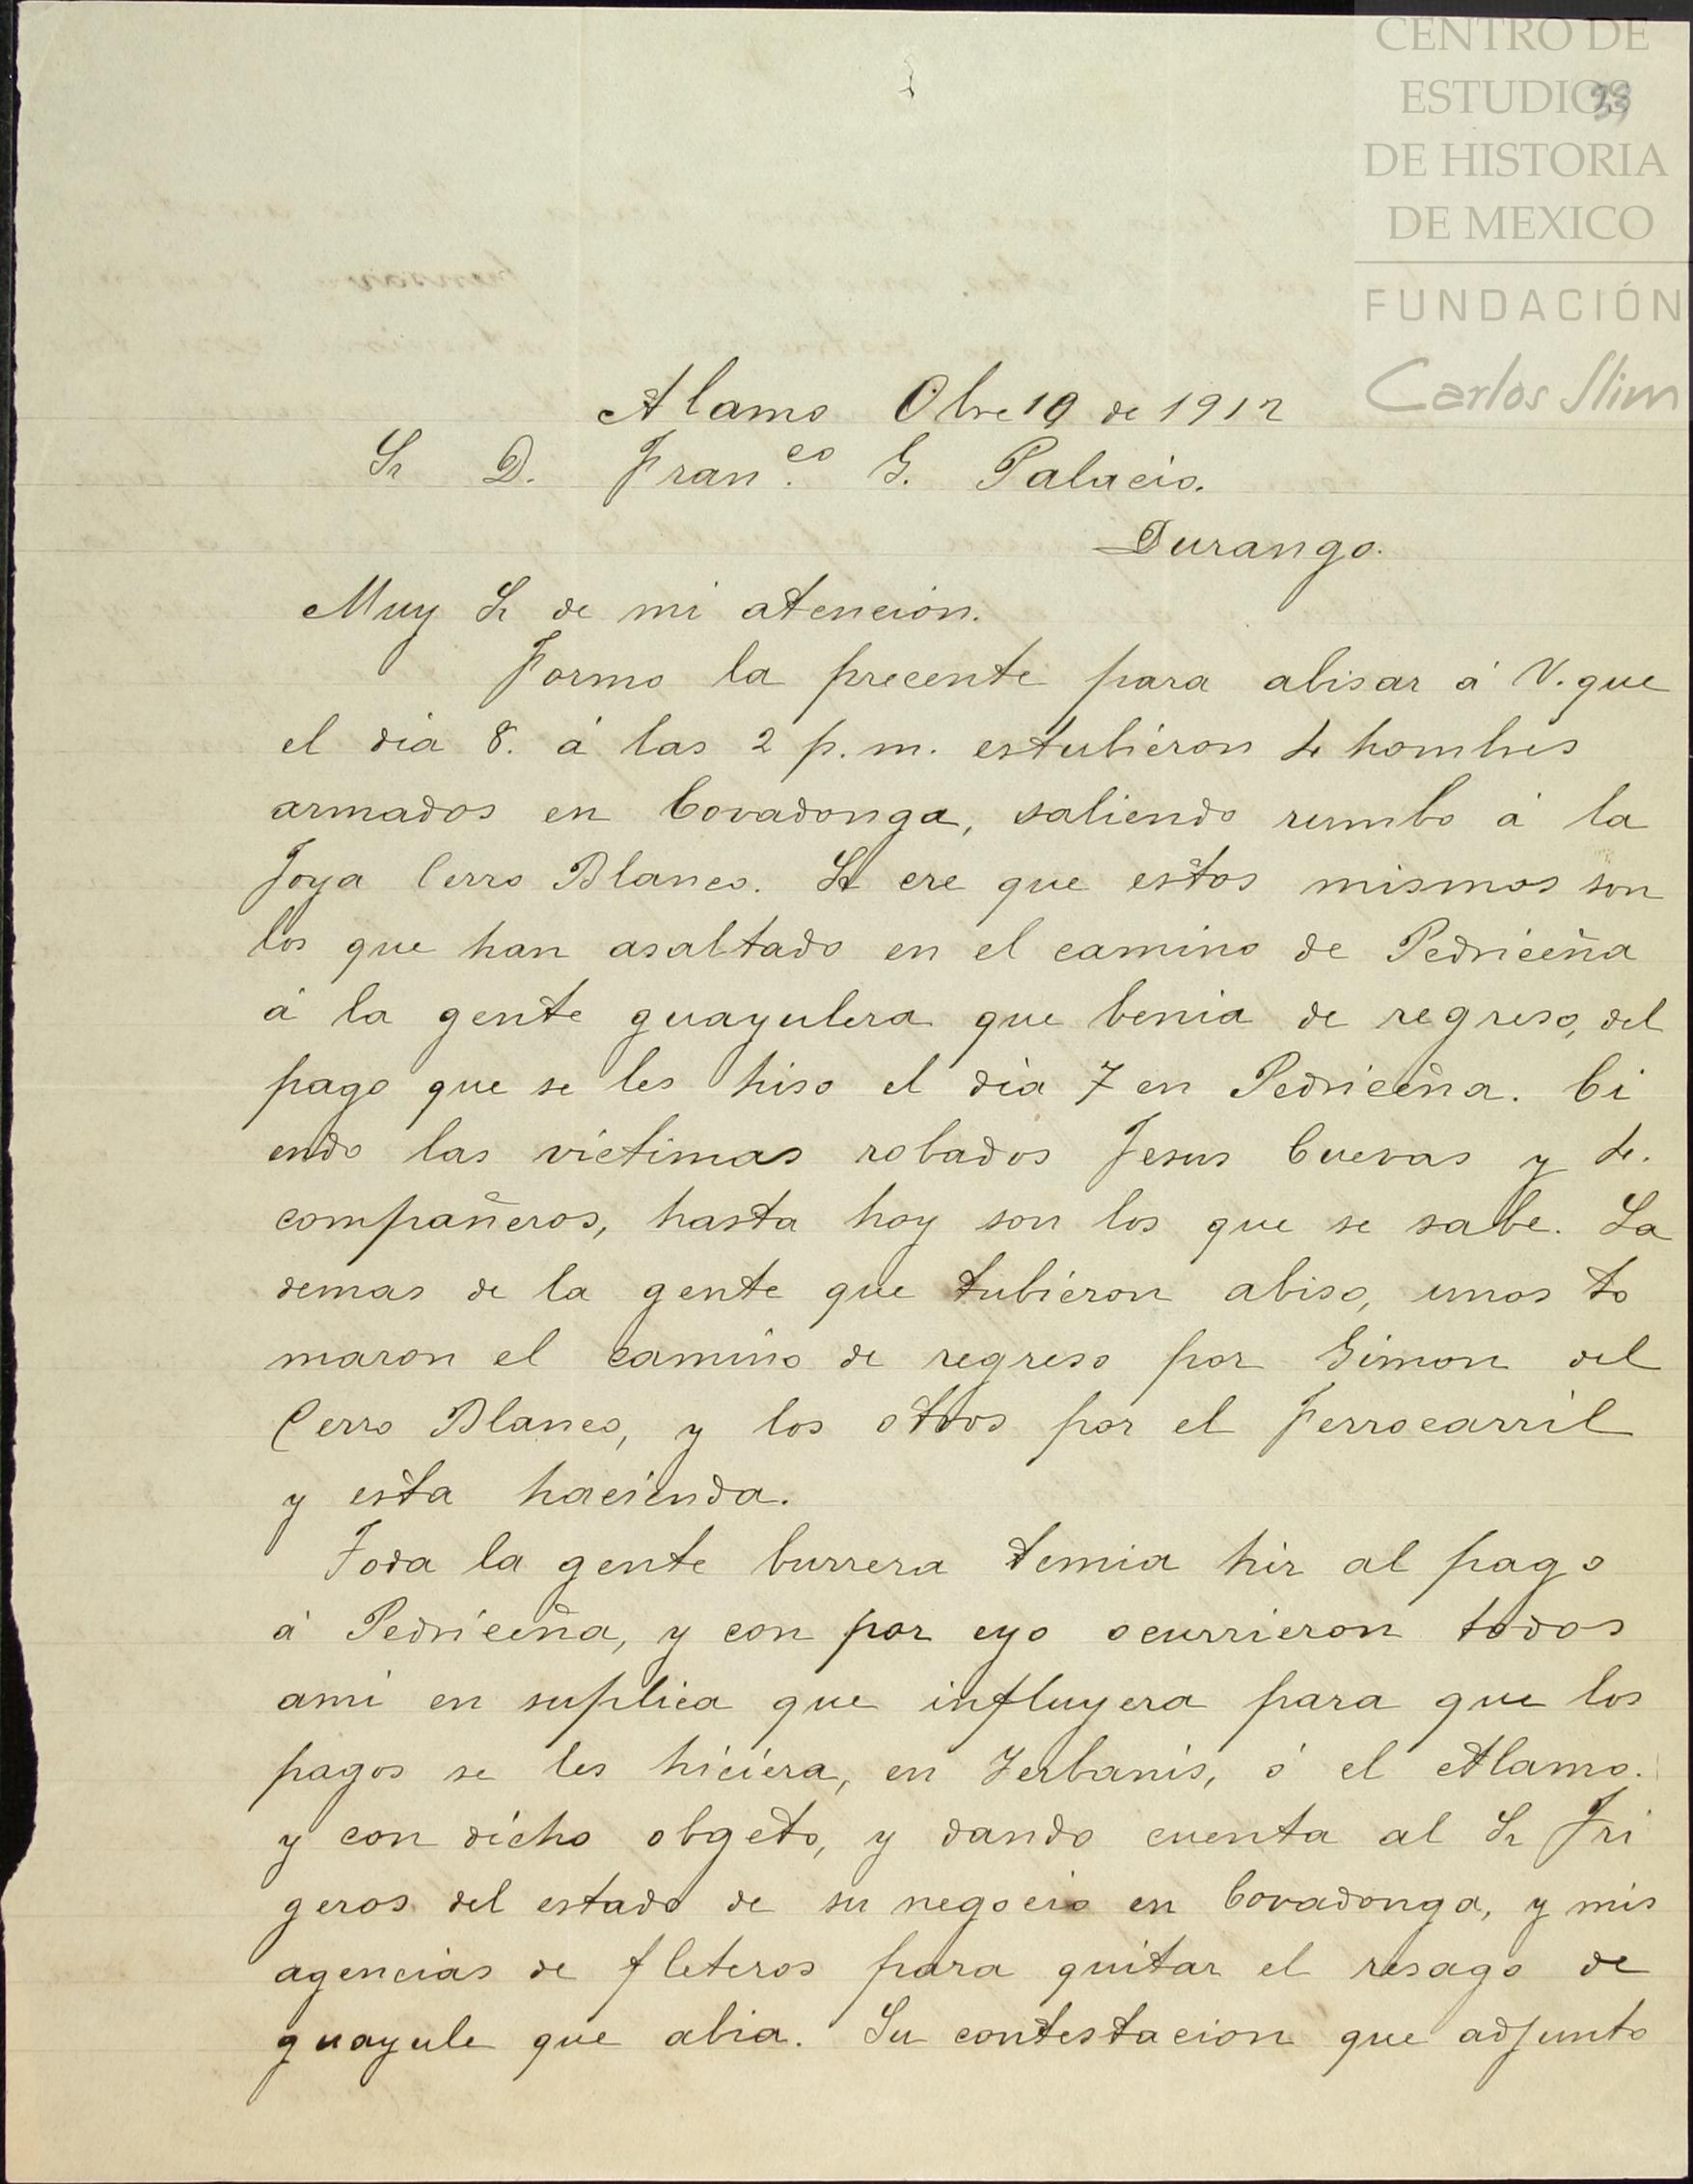 CENTRO DE
ESTUDIOS
DE HISTORIA
DE MEXICO
FUNDACIÓN
Carlos Slim
Alamo Obre 10 de 1912
Sr D. Fran.co G. Palacio.
Durango.
Muy Sr de mi atención.
Formo la precente para abisar á V. que
el dia 8. á las 2 p.m. estubiéron 4 hombres
armados en Covadonga, saliendo rumbo á la
Joya Cerro Blanco. Se cre que estos mismos son
los que han asaltado en el camino de Pedriceña
á la gente guayulera que benia de regreso, del
pago que se les hiso el dia 7 en Pedriceña. Ci
endo las victimas robados Jesus Cuevas y 4.
compañeros, hasta hoy son los que se sabe. La
demas de la gente que tubiéron abiso, unos to
maron el camino de regreso por Simon del
Cerro Blanco, y los otros por el Ferrocarril
y esta hacienda.
Toda la gente burrera temia hir al pago
á Pedriceña, y con por eyo ocurrieron todos
ami en suplica que influyera para que los
pagos se les hiciéra, en Yerbanis, ó el Alamo.
y con dicho obgeto, y dando cuenta al Sr Tri
geros del estado de su negocio en Covadonga, y mis
agencias de fleteros para quitar el resago de
guayule que abia. Su contestacion que adjunto